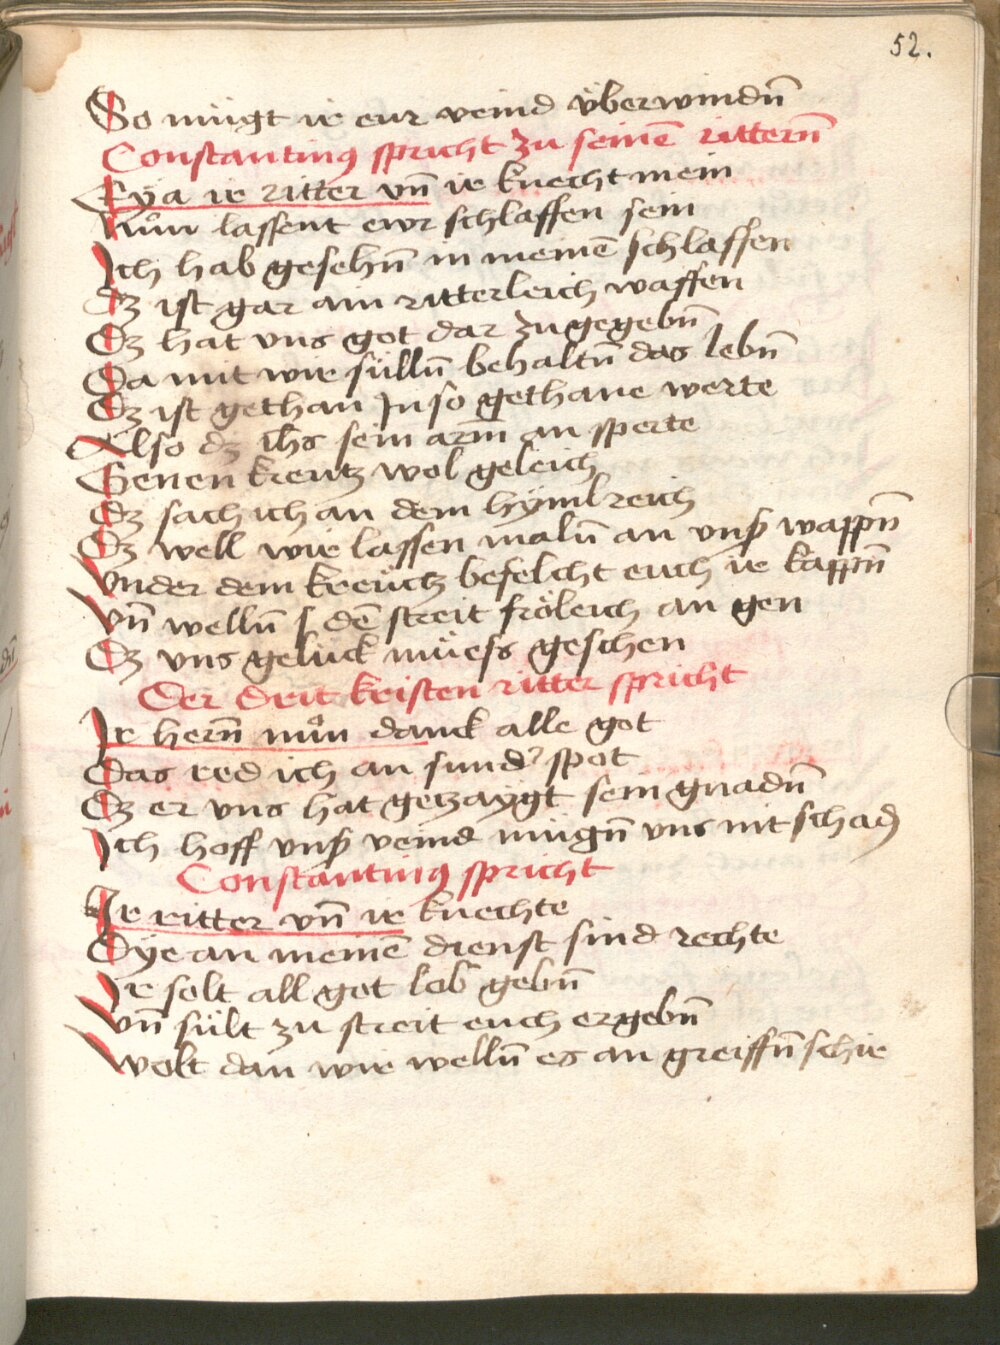 52.
So mügt ir eur veind überwindn̄
Constantinꝯ spricht zu seinē rittern̄
Eÿa ir ritter vn̄ ir knecht mein
Nůn lassent ewr schlaffen sein
Ich hab gesehn̄ in meinē schlaffen
Dz ist gar ain ritterleich waffen
Dz hat vns got dar zu gegebn̄
Da mit wir sülln̄ behaltn̄ das lebn̄
Dz ist gethan In so gethane werte
Also dz ihs sein arm̄ an sperte
Genen kreutz wol geleich
Dz sach ich an dem hÿmlreich
Dz well wir lassen maln̄ an vnß wappn̄
Vnder dem kreutz befelcht euch ir kappn̄
Vn̄ welln̄ dē streit fröleich an gen
Dz vns gelück müess geschen
Der drit kristen ritter spricht
Ir hern̄ nůn danck alle got
Das red ich an sund' spot
Dz er vns hat getzaÿgt sein gnadn̄
Ich hoff vnß veind mügn̄ vns nit schadn
Constantinꝯ spricht
Ir ritter vn̄ ir knechte
Dÿe an meinē dienst sind rechte
Ir solt all got lob gebn̄
Vn̄ sült zu streit euch ergebn̄
Wolt dan wir welln̄ es an greiffn̄ schir